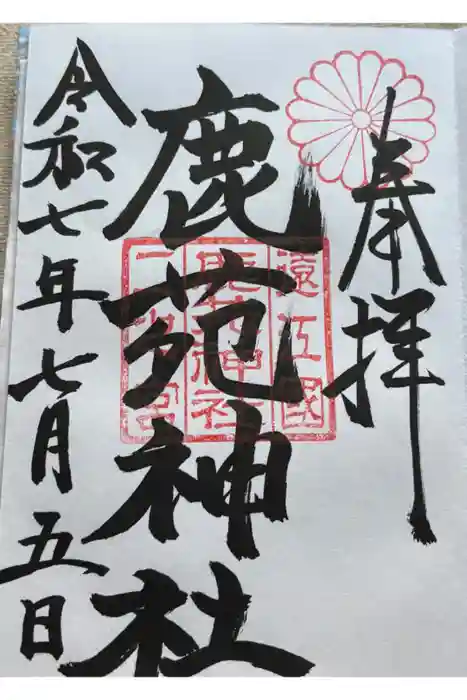 奉拝
遠江國
鹿苑神社
二宮
鹿苑神社
令和七年七月五日